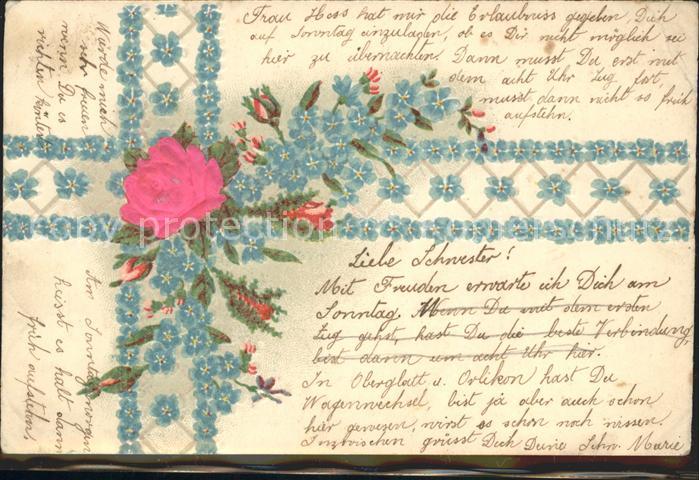 Frau Hess hat mir die Erlaubniss gegeben, Dich
auf Sonntag einzuladen, ob es Dir nicht möglich sei
hier zu übernachten. Dann musst Du erst mit
dem acht Uhr Zug fort
musst dann nicht so früh
aufstehn.
Würde mich
sehr freuen
wenn Du es
richten könntest
Liebe Schwester!
Mit Freuden erwarte ich Dich am
Sonntag. Wenn Du mit dem ersten
Zug gehst, hast Du die beste Verbindung,
bist dann um acht Uhr hier.
In Oberglatt u. Örlikon hast Du
Wagenwechsel, bist ja aber auch schon
hier gewesen, wirst es schon noch wissen.
Inzwischen grüsst Dich Deine Schw. Marie
Am Sonntag morgen
heisst es halt dann
früh aufstehn.
copy protection